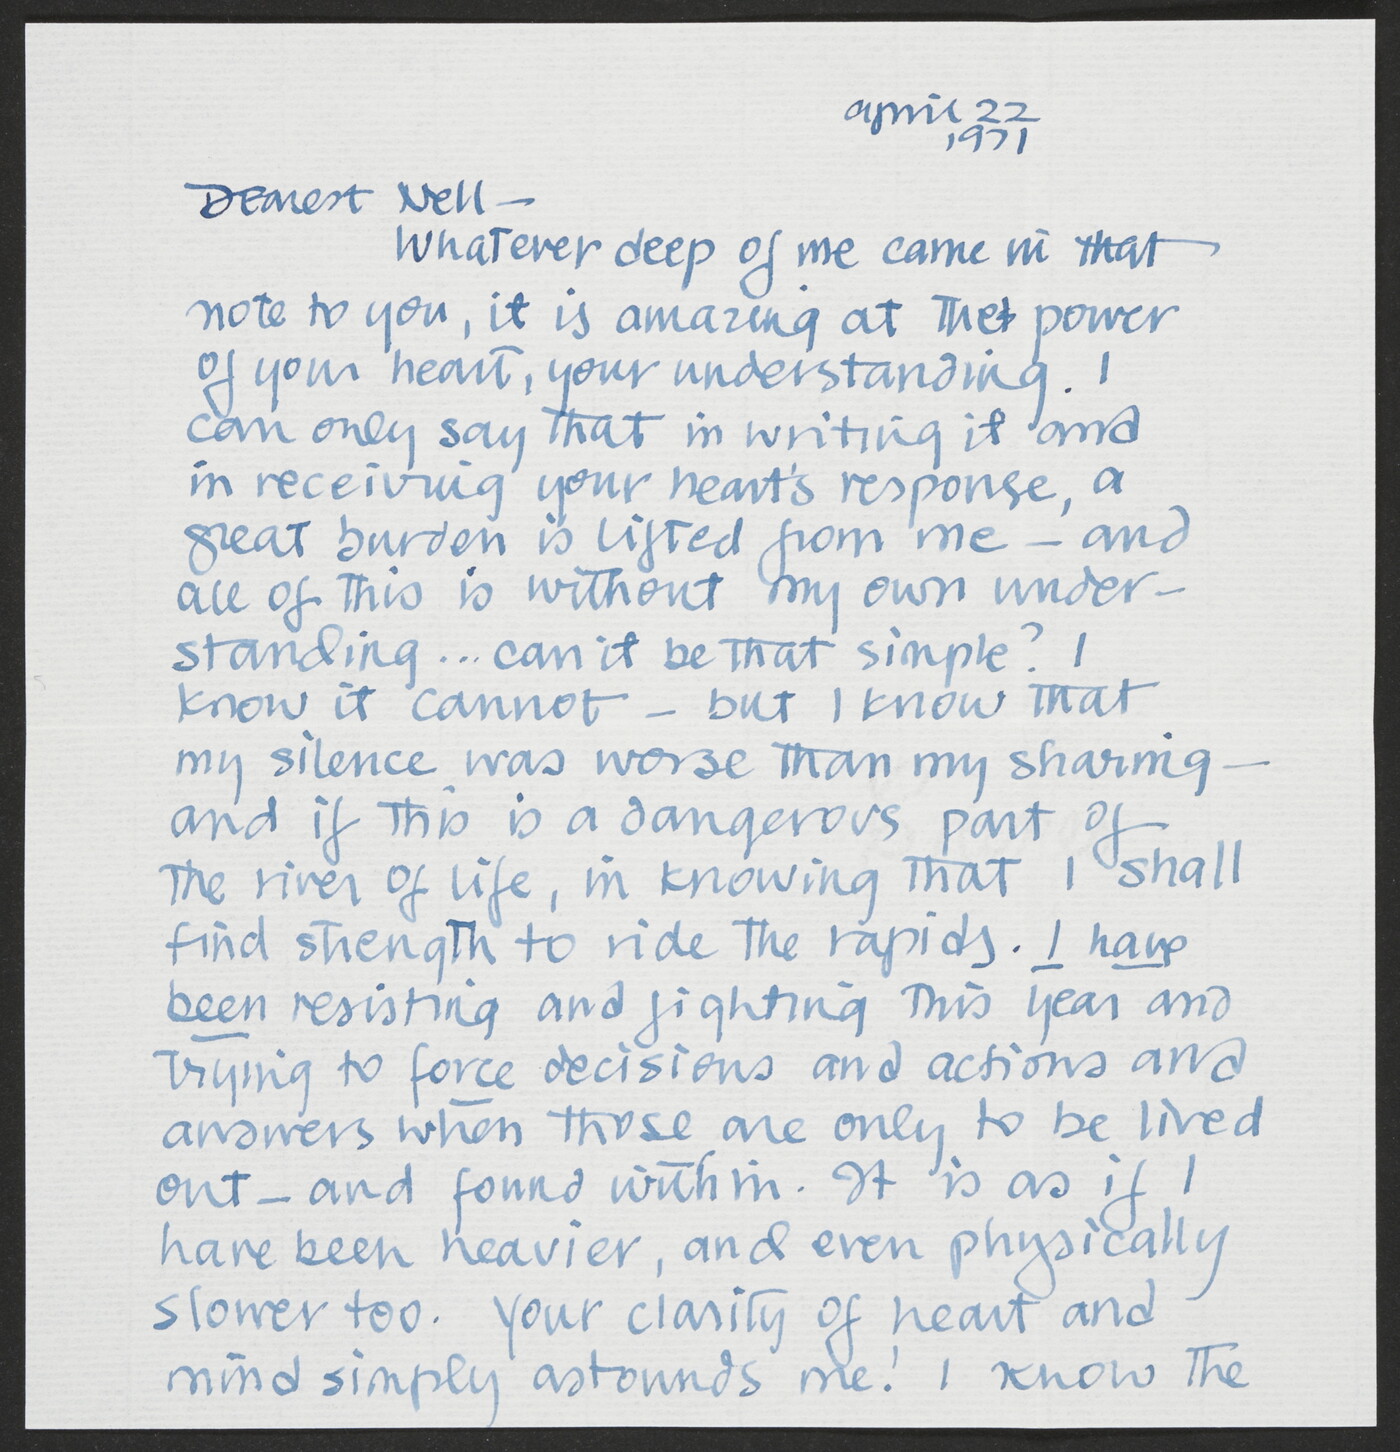 april 22
1971
Dearest Nell —
Whatever deep of me came in that
note to you, it is amazing at the power
of your heart, your understanding. I
can only say that in writing it and
in receiving your heart's response, a
great burden is lifted from me — and
all of this is without my own under-
standing ... can it be that simple? I
know it cannot — but I know that
my silence was worse than my sharing —
and if this is a dangerous part of
the river of life, in knowing that I shall
find strength to ride the rapids. I have
been resisting and fighting this year and
trying to force decisions and actions and
answers when those are only to be lived
out — and found within. It is as if I
have been heavier, and even physically
slower too. Your clarity of heart and
mind simply astounds me! I know the